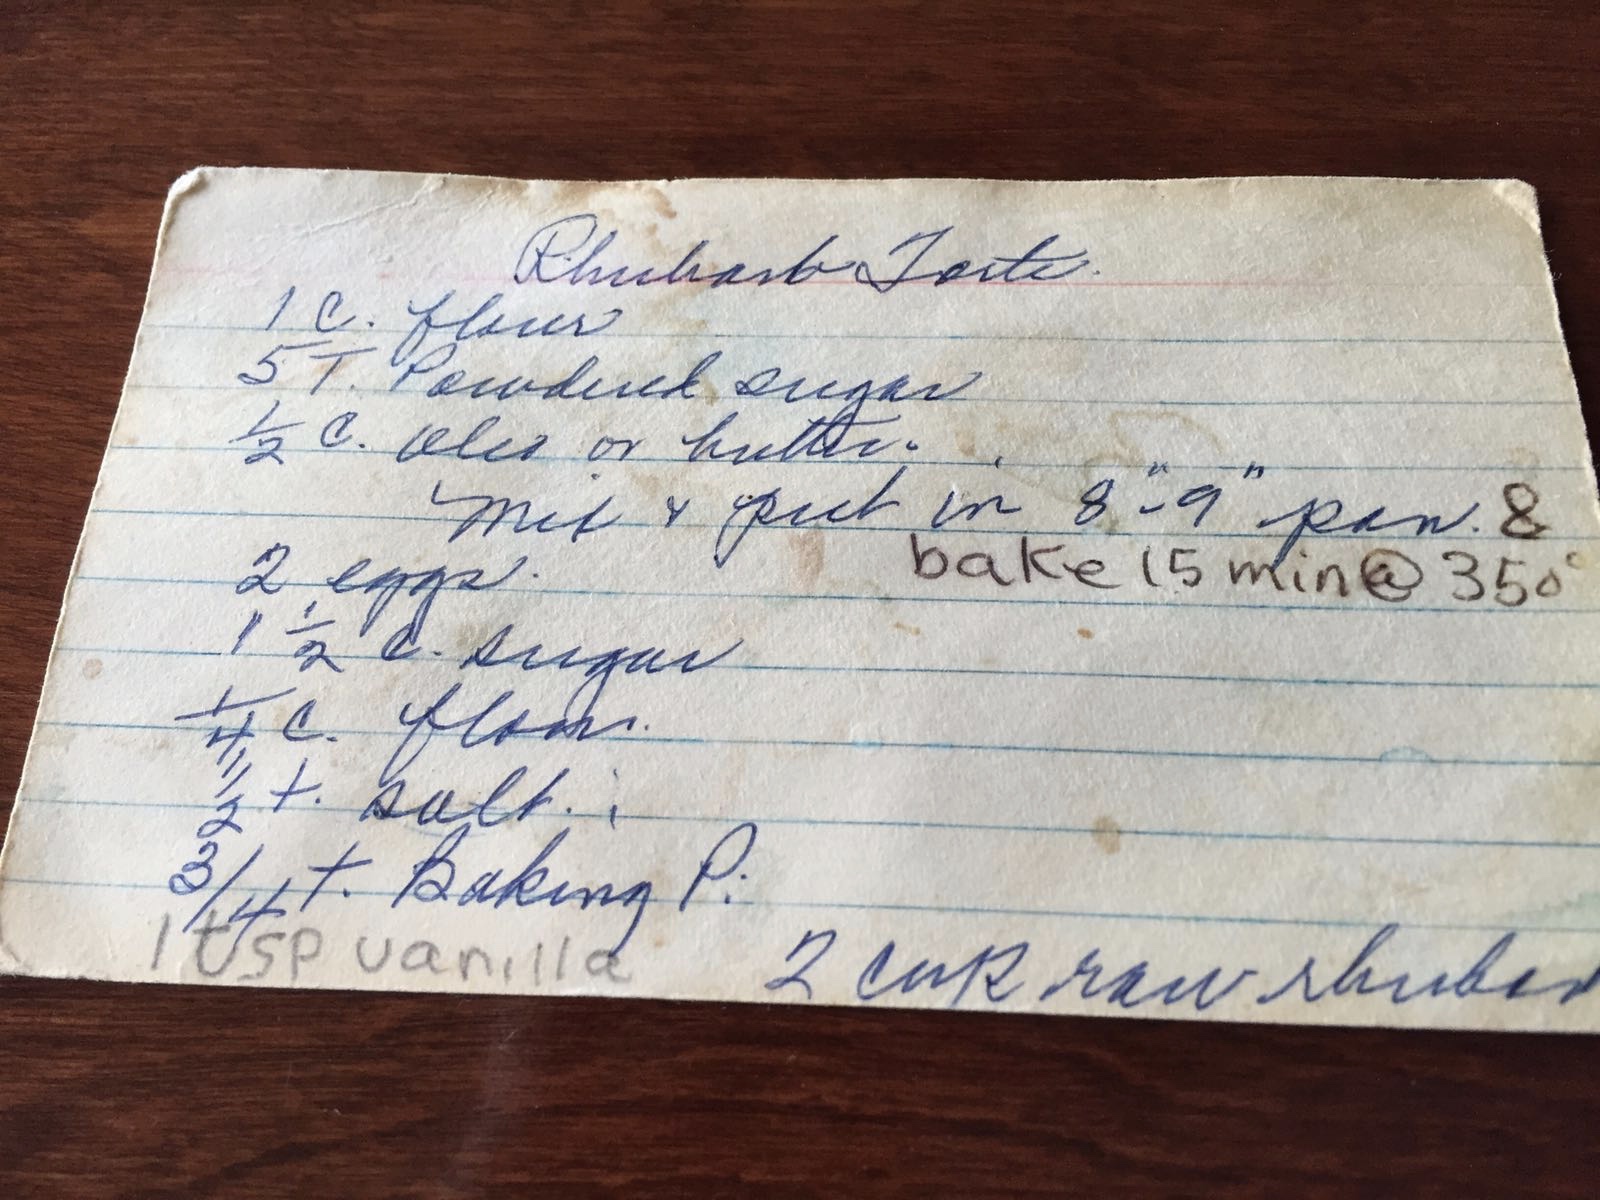 Rhubarb Torte.
1 C. flour
5 T. Powdered sugar
1/2 C. Oleo or butter.
Mix & put in 8"-9" pan. &
bake 15 min @ 350°
2 eggs.
1 1/2 C. sugar
1/4 C. flour.
1/2 t. salt.
3/4 t. Baking P.
1 tsp vanilla
2 cup raw rhubar